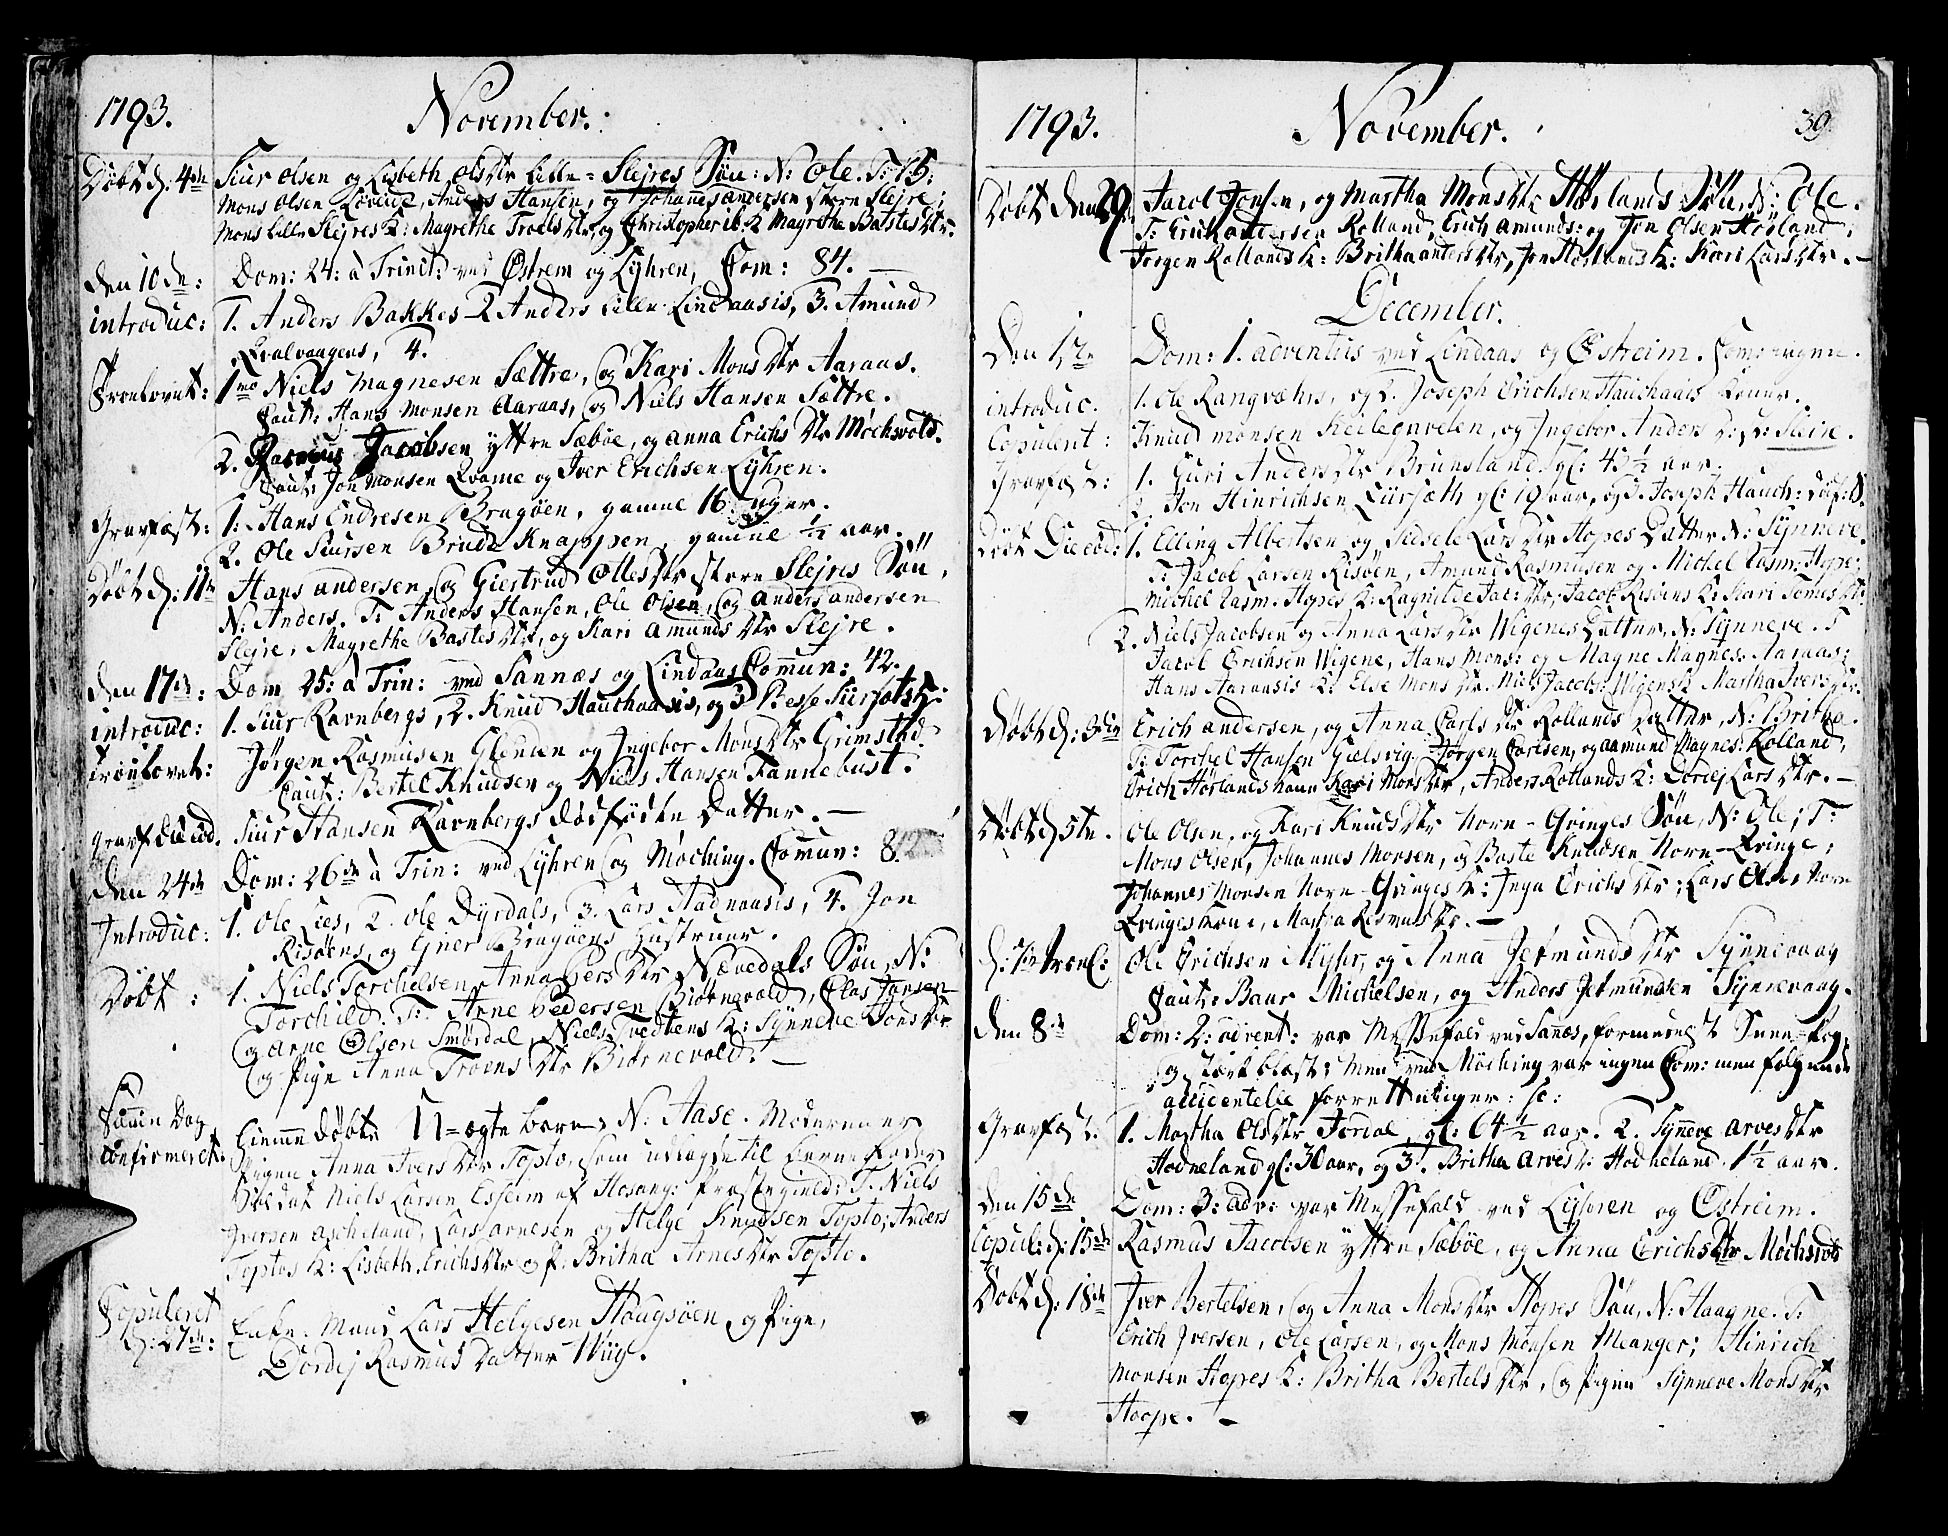 1793. November.
Döbt d: 4de Siur Olsen og Lisbeth Olsdtr Lille-Slejres Søn: N: Ole. T:
Mons Olsen, Anders Hansen, og Johanes andersen store Slejre;
Mons Lille Slejres K: Magrethe Troelsdtr, og Christopher K: Magrethe Bastesdtr.
den 10de: Dom: 24: à Trinit: ved Østrem og Lyhren, Com: 84.
introduc: 1. Anders Bakkes 2 Anders Lille Lindaasis, 3. Amund
Qvalvaagens, 4.
Troelovet: 1mo Niels Magnesen Sættre, og Kari Monsdtr Aaraas.
Caut: Hans Monsen Aaraas, og Niels Hansen Sættre.
2. Rasmus Jacobsen yttre Sæbøe, og anna Erichsdtr Mochsvold.
Caut: Jon Monsen Qvame og Iver Erichsen Lyhren.
Gravfæst: 1. Hans Endresen Bragøen, gamle 16 uger.
2. Ole Siursen Brude Knappen, gamle ½ aar.
Döbt d: 11te Hans andersen, og Giertrud Ollesdtr store Slejres Søn,
N: Anders. T: Anders Hansen, Ole Olsen, og Anders andersen
Slejre, Magrethe Bastesdtr, og Kari amundsdtr Slejre.
den 17de: Dom 25: à Trin: ved Sannæs og Lindaas Comun: 42.
introduc: 1. Siur Ravnbergs, 2. Knud Hauchaasis, og 3
Troelovet: Jørgen Rasmusen Glenden og Ingebor Monsdtr Grimstad.
Caut: Bertel Knudsen og Niels Hansen Fannebust.
Gravf Siur Hansen Ravnbergs dødfødte Datter.
den 24de Dom: 26de à Trin: ved Lyhren og Moching. Comun: 82
Introduc: 1. Ole Lies, 2. Ole Dyrdals, 3. Lars Hadnaasis, 4. Jon
Risøens, og Giner Bragøens Hustruer.
Döbt: 1. Niels Torchelsen, Anna Persdtr Nævedals Søn, N:
Torchild. T: Arne Pedersen Biørnevold, Clas Jansen
og Arne Olsen Smørdal, Niels Tvedtens K: Synneve Jonsdtr
og Pige Anna Troensdtr Biørnevold.
Samme Dag Hiemme döbte U=ægte barn, N: Aase. Moderen er
confirmeret. Pigen Anna Iversdtr Topto, som udlagde til Barnefader
Soldat Niels Larsen Esseim af Hosang: T: Niels
Iversen Ascheland, Lars Arnesen og Helge Knudsen Topto; Anders
Toptos K: Lisbeth Erichsdtr og P: Britha Arnesdtr Topto.
Copuleret Enke-Mand Lars Helgesen Hougsøen og Pige,
d: 27de: Dordej Rasmus datter Wiig.
1793. November. 39
Döbt den 29. Jacob Jonsen, og Martha Monsdtr Hörlands Søn, N: Ole.
T: Erich andersen Rolland, Erich amunds: og Jon Olsen Hörland;
Jørgen Rollands K: Britha andersdtr, Jon Hörlands K: Kari Larsdtr.
December.
Den 1te Dom: 1. adventus ved Lindaas og Østreim. Com: ingen.
introduc. 1. Ole Rangvæhrs, og 2. Joseph Erichsen Hauchaas konner.
Copulerit: Knud Monsen Keilegavelen, og Ingebor Anders Dtr: Sleire.
Gravfæst: 1. Guri Andersdtr Brunsland. gl: 43½ aar.
2. Jon Hinrichsen Liursæth gl: 10 aar, og 3. Joseph Hauch:
Döbt 1. Elling Albertsen og Sidsele Larsdtr Hopes Datter N: Synneve.
T: Jacob Larsen Risøen, Amund Rasmusen og Michel Rasm: Hope;
Michel Rasm: Hopes K: Ragnilde Jac:dtr, Jacob Risøens K: Kari Tomasdtr.
2. Niels Jacobsen og Anna Larsdtr Wigenes Datter, N: Synneve. T
Jacob Erichsen Wigene, Hans Mons: og Magne Magnes: Aaraas;
Hans Aaraasis K: Else Monsdtr. Niels Jacobs: Wigens K Martha Iver:dtr.
Döbt d: 3die Erich andersen, og Anna Carlsdtr Rollands Datter, N: Britha.
T: Torchel Hansen Gielsvig, Jörgen Carlsen, og aamund Magnes: Rolland,
Erich Hörlands kone Kari Monsdtr, Anders Rollands K: Dordej Larsdtr.
Döbt d 5te. Ole Olsen, og Kari Knudsdtr Norn-Qvinges Søn, N: Ole; T:
Mons Olsen, Johannes Monsen, og Baste Knudsen Norn-Qvinge;
Johannes Monsen Norn-Qvinges K: Inga Erichsdtr; Lars Olsen Norn
Qvinges kone, Martha Rasmusdtr.
d: 7de Troel: Ole Erichsen Myhr, og Anna Jetmundsdtr Synnevaag
Caut: Baar Michelsen, og Anders Jetmundsen Synnevaag.
den 8de Dom: 2: advent: var Messefald ved Sanæs, formedelst Snee-fog,
og stærk blæst; men ved Moching var ingen Com: men følgende
accidentelle forrettninger: sc:
Gravfæst. 1. Martha Olsdtr Torial, gl: 64½ aar. 2. Synneve arvesdtr
Hodneland gl: 30 aar, og 3. Britha Arves: Hodneland. 1½ aar.
den 15de Dom: 3: adv: var Messefald ved Lyhren og Østreim.
Copul: d: 15de Rasmus Jacobsen yttre Sæbøe, og Anna Erichsdtr Mochsvold
Döbt d: 18de Iver Bertelsen, og Anna Monsdtr Hopes Søn, N: Haagne. T:
Erich Iversen, Ole Larsen, og Mons Monsen Meanger; Hinrich
Monsen Hopes K: Britha Bertelsdtr, og Pigen Synneve Monsdtr
Hoope.